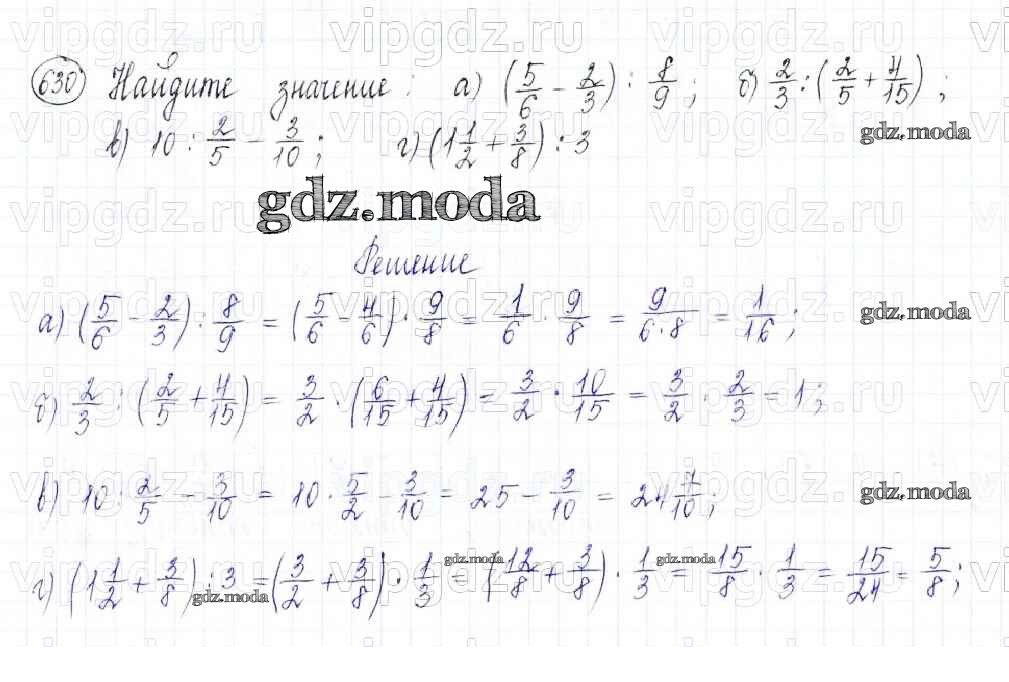 630 Найдите значение: а) (5/6 - 2/3) : 8/9; б) 2/3 : (2/5 + 4/15);
в) 10 : 2/5 - 3/10; г) (1 1/2 + 3/8) : 3
gdz.moda
gdz.moda
Решение
а) (5/6 - 2/3) : 8/9 = (5/6 - 4/6) · 9/8 = 1/6 · 9/8 = 9/6·8 = 1/16;
gdz.moda
б) 2/3 : (2/5 + 4/15) = 3/2 · (6/15 + 4/15) = 3/2 · 10/15 = 3/2 · 2/3 = 1;
в) 10 : 2/5 - 3/10 = 10 · 5/2 - 3/10 = 25 - 3/10 = 24 7/10;
gdz.moda
г) (1 1/2 + 3/8) : 3 = (3/2 + 3/8) · 1/3 = (12/8 + 3/8) · 1/3 = 15/8 · 1/3 = 15/24 = 5/8;
gdz.moda
gdz.moda
gdz.moda
vipgdz.ru